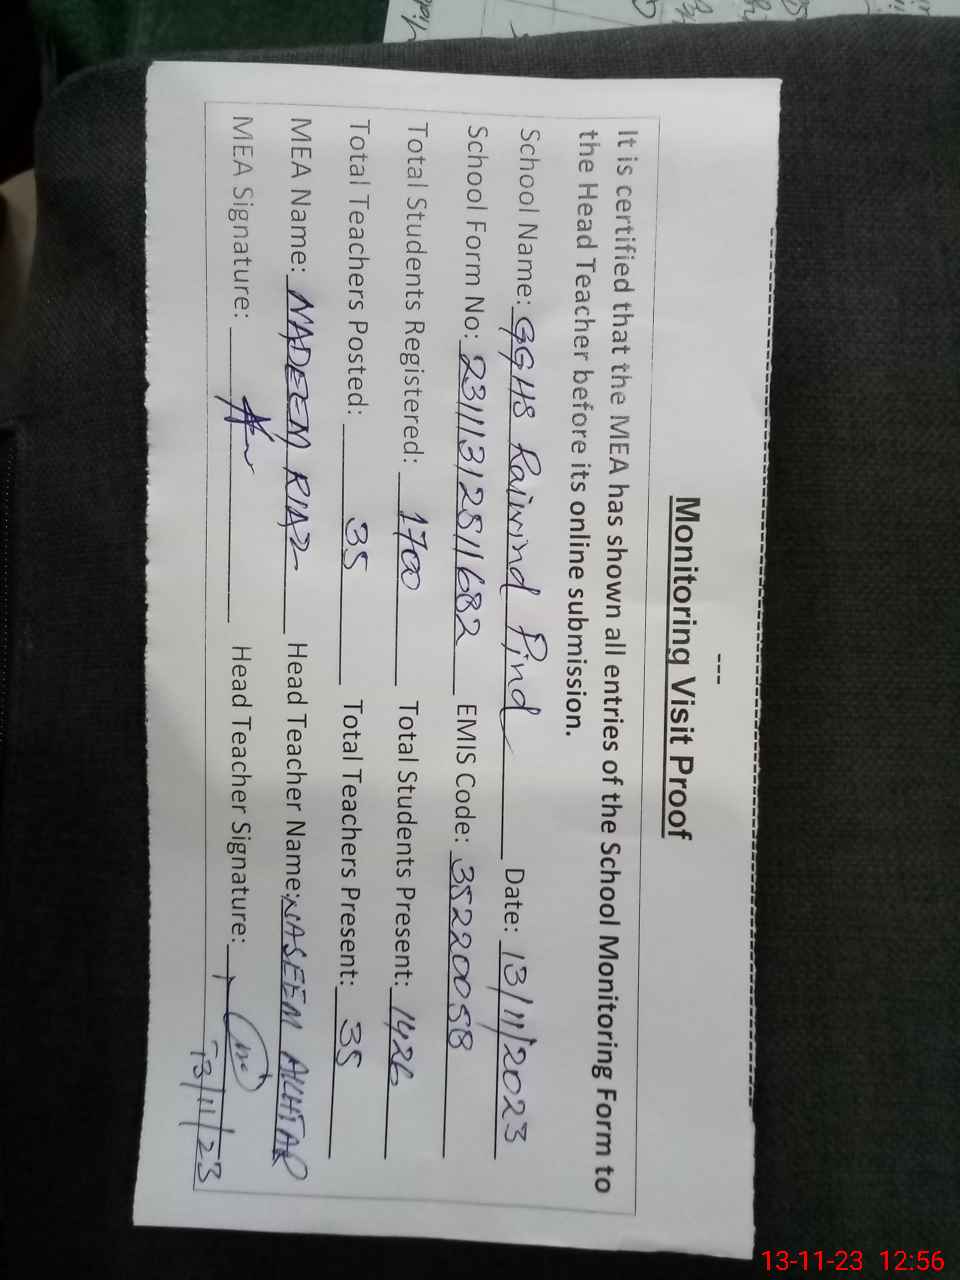 ---
Monitoring Visit Proof
It is certified that the MEA has shown all entries of the School Monitoring Form to
the Head Teacher before its online submission.
School Name: GGHS Raiwind Pind Date: 13/11/2023
School Form No: 23111312811682 EMIS Code: 35220058
Total Students Registered: 1700 Total Students Present: 1426
Total Teachers Posted: 35 Total Teachers Present: 35
MEA Name: NADEEM RIAZ Head Teacher Name: NASEEM AKHTAR
MEA Signature: Head Teacher Signature:
13/11/23
13-11-23 12:56